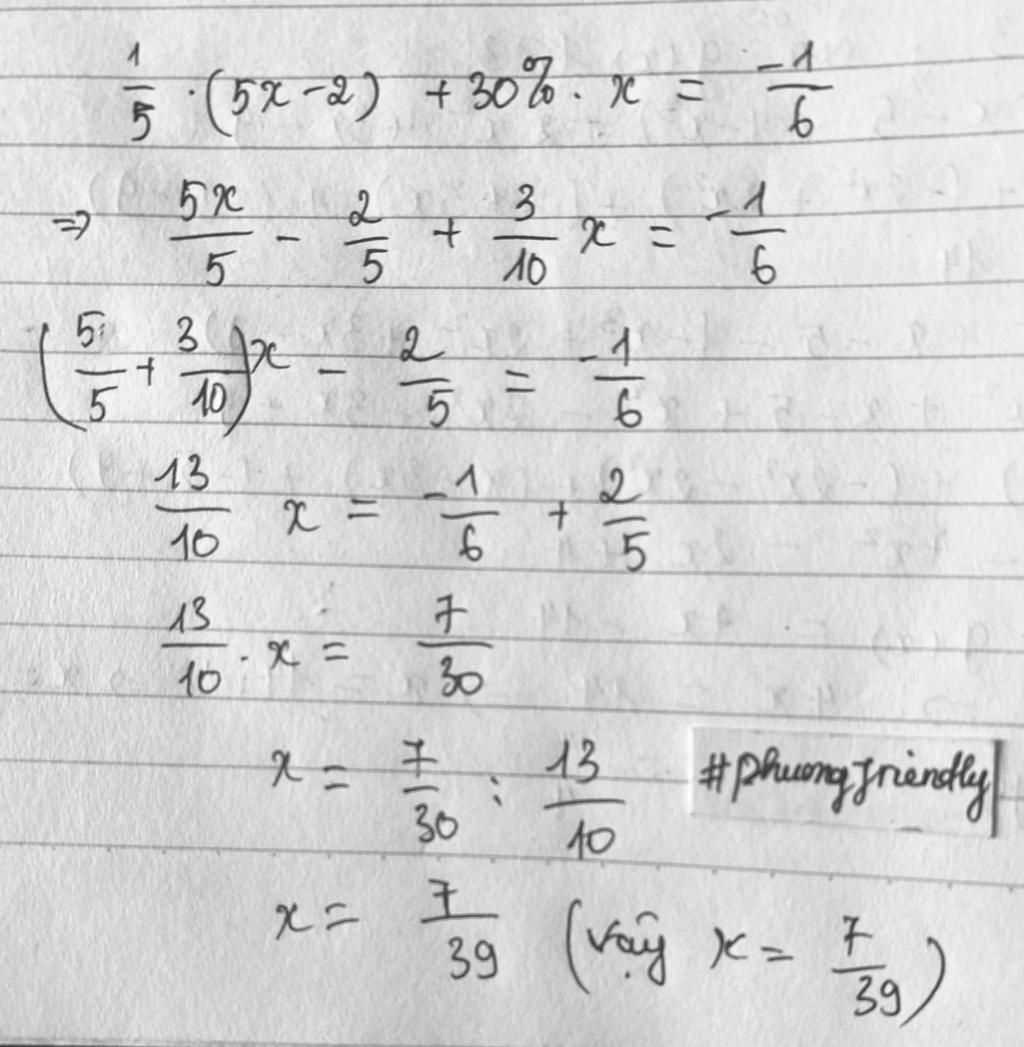 1/5 · (5x - 2) + 30% · x = -1/6
=> 5x/5 - 2/5 + 3/10 x = -1/6
(5/5 + 3/10)x - 2/5 = -1/6
13/10 x = -1/6 + 2/5
13/10 · x = 7/30
x = 7/30 : 13/10
#phuongfriendly
x = 7/39 (vậy x = 7/39)